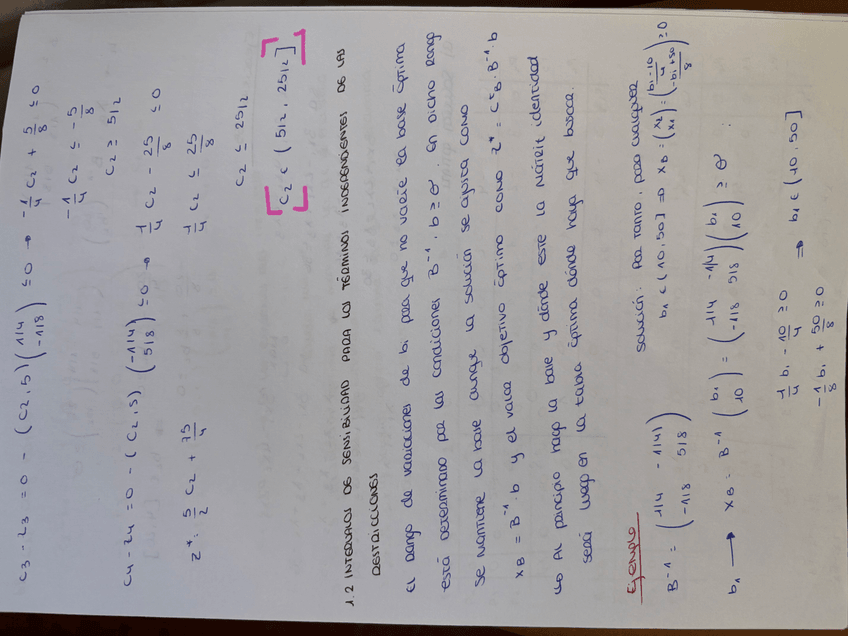 C3 - Z3 = 0 - (C2, 5) (1/4 -1/8) ≤ 0 → -1/4 C2 + 5/8 ≤ 0
-1/4 C2 ≤ -5/8
C2 ≥ 5/2
C4 - Z4 = 0 - (C2, 5) (-1/4 5/8) ≤ 0 → 1/4 C2 - 25/8 ≤ 0
1/4 C2 ≤ 25/8
Z*: 5/2 C2 + 75/4
C2 ≤ 25/2
[C2 ∈ (5/2, 25/2]]
1.2 INTERVALOS DE SENSIBILIDAD PARA LOS TÉRMINOS INDEPENDIENTES DE LAS
RESTRICCIONES
El rango de variaciones de bi para que no varíe la base óptima
está determinado por las condiciones B⁻¹ · b ≥ θ. En dicho rango
se mantiene la base aunque la solución se ajusta como
XB = B⁻¹ · b y el valor objetivo óptimo como Z* = CᵗB · B⁻¹ · b
↳ Al principio hago la base y dónde esté la matriz identidad
será luego en la tabla óptima dónde haya que buscar.
Ejemplo
B⁻¹ = (1/4 -1/4) (-1/8 5/8)
solución: Por tanto, para cualquier
b1 ∈ (10, 50] ⇒ XB = (X2 X1) = (b1-10/4 -b1+50/8) ≥ 0
b1 → XB = B⁻¹ (b1 10) = (1/4 -1/4 -1/8 5/8) (b1 10) ≥ θ
1/4 b1 - 10/4 ≥ 0
-1/8 b1 + 50/8 ≥ 0 ⇒ b1 ∈ (10, 50]